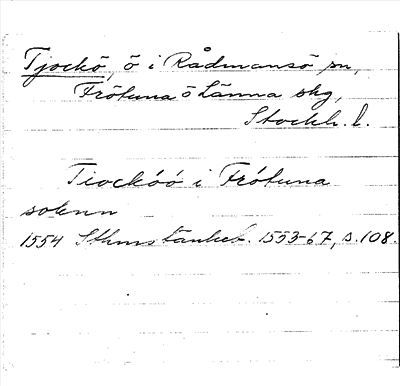 Tjockö, ö i Rådmansö sn,
Frötuna o Länna skg,
Stockh. l.
Tiockóó i Frótuna
soknn
1554 Sthmstänkeb. 1553-67, s. 108.